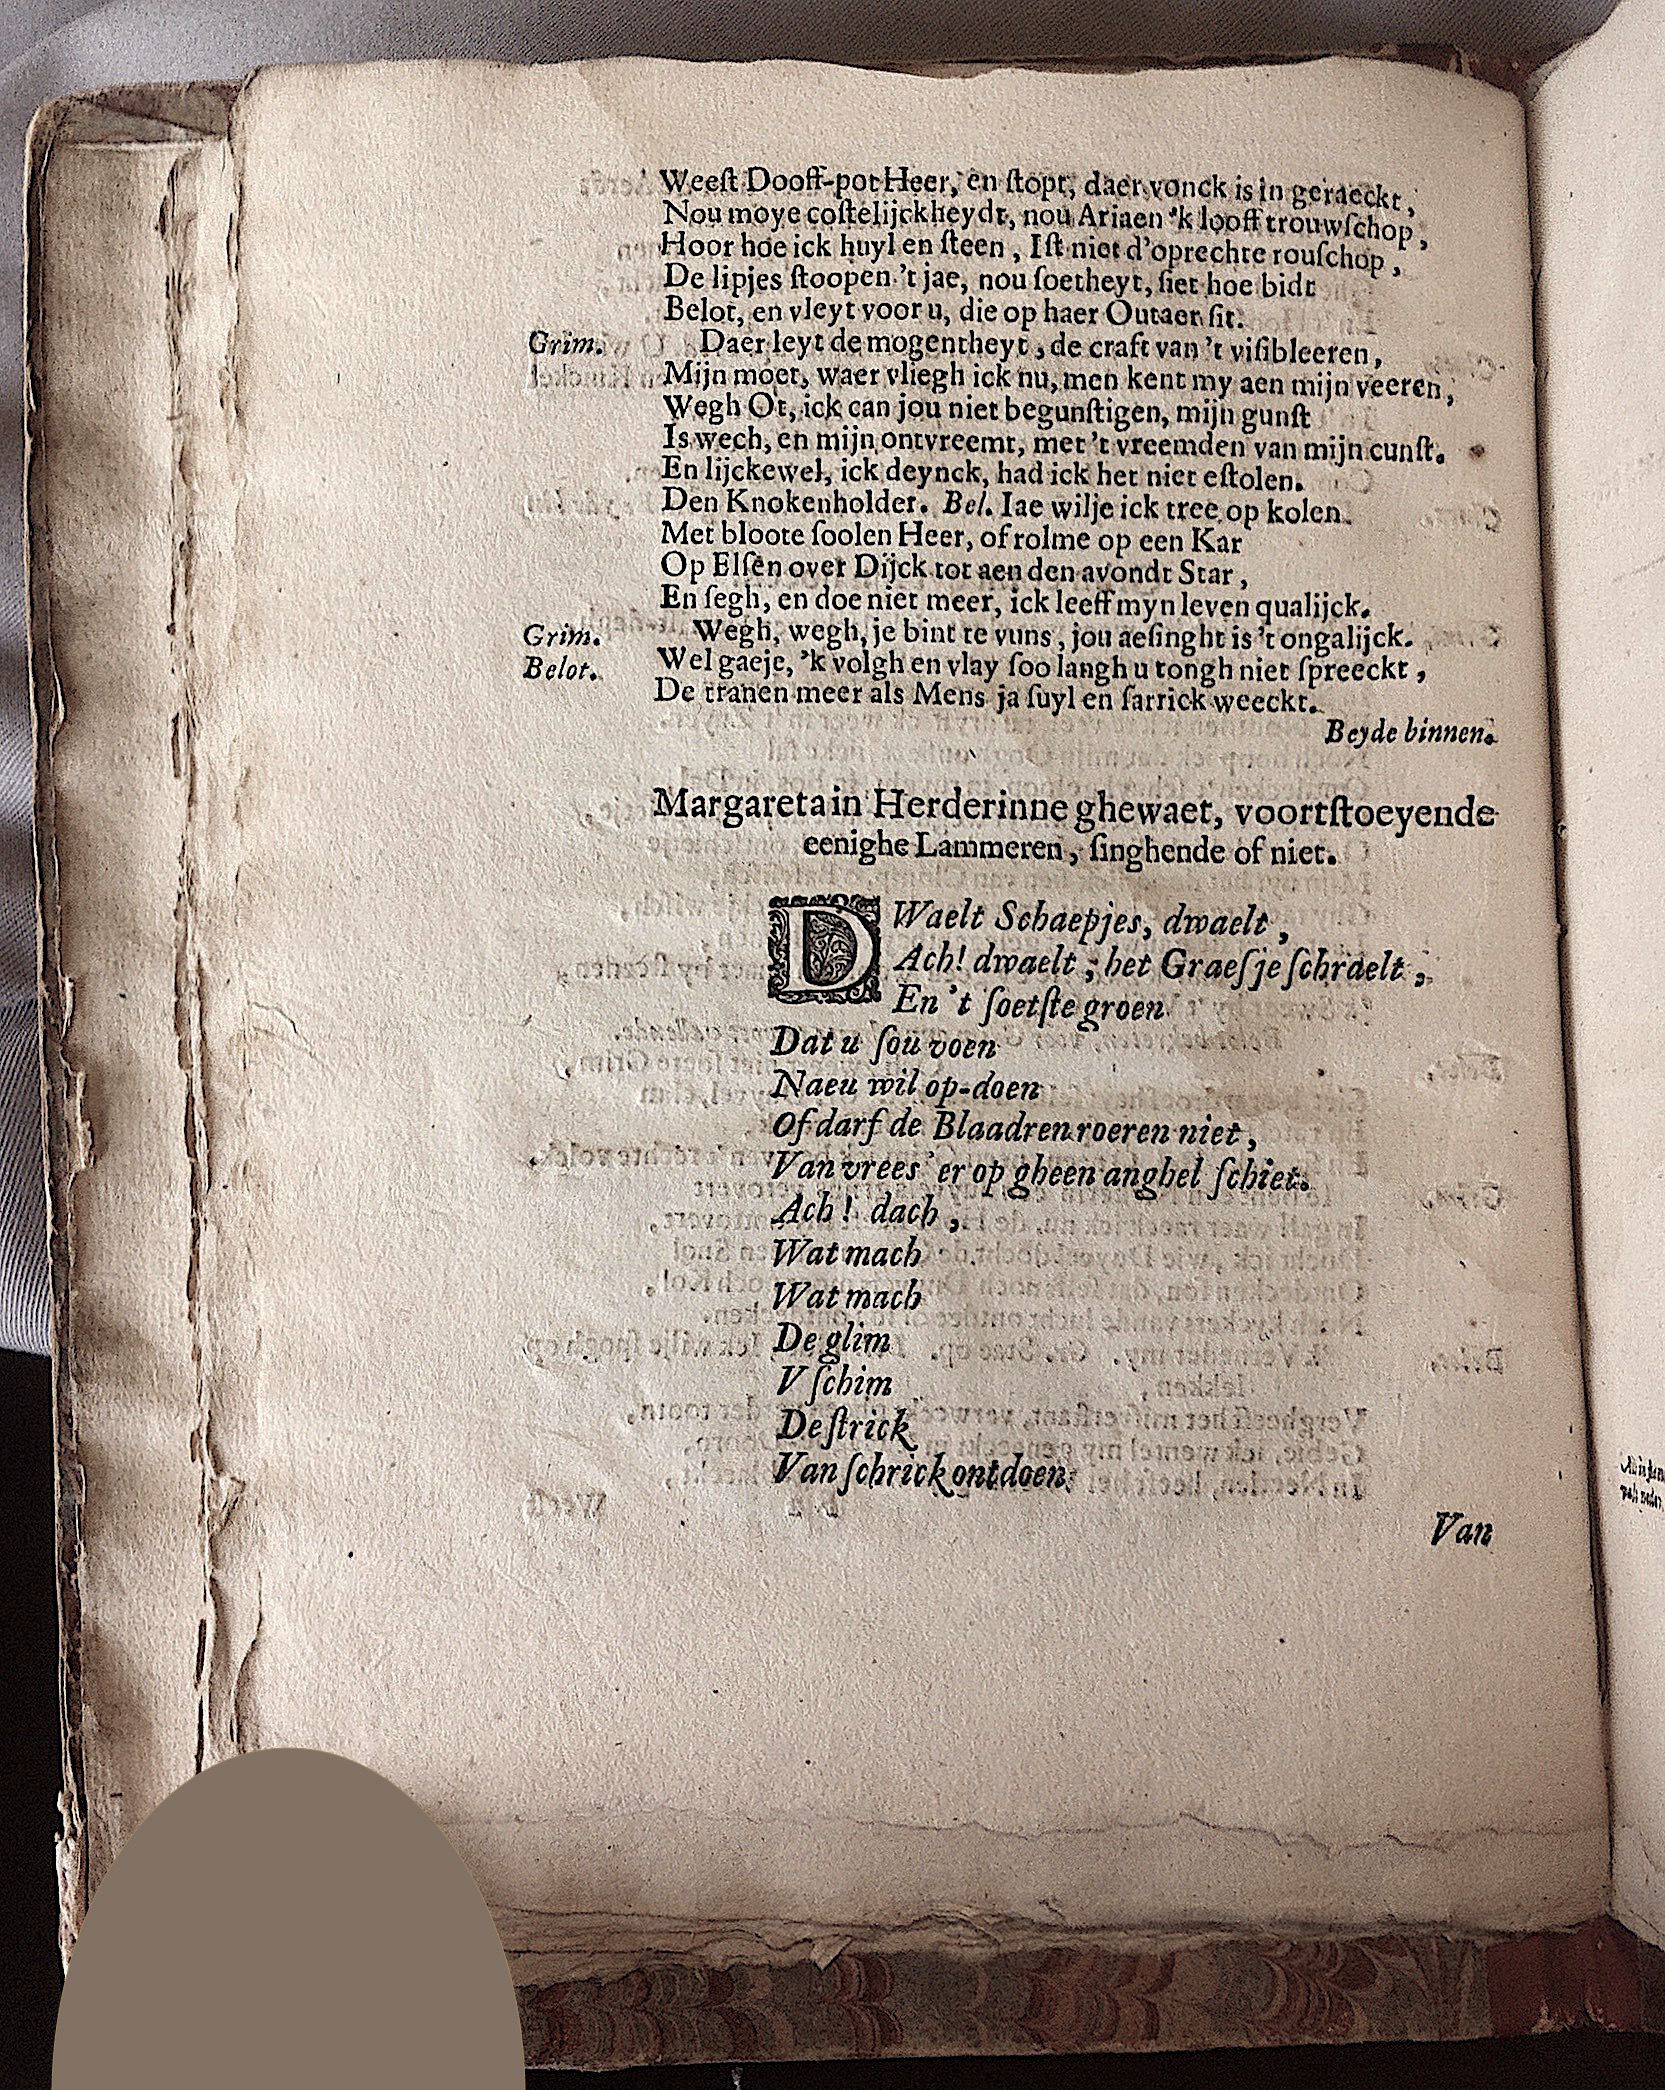 Weeſt Dooff-pot Heer, en ſtopt, daer vonck is in geraeckt,
Nou moye coſtelijckheydt, nou Ariaen 'k looff trouwſchop,
Hoor hoe ick huyl en ſteen, Iſt niet d'oprechte rouſchop,
De lipjes ſtoopen 't jae, nou ſoetheyt, ſiet hoe bidt
Belot, en vleyt voor u, die op haer Outaer ſit.
Grim. Daer leyt de mogentheyt, de craft van 't viſibleeren,
Mijn moet, waer vliegh ick nu, men kent my aen mijn veeren,
Wegh Ot, ick can jou niet begunſtigen, mijn gunſt
Is wech, en mijn ontvreemt, met 't vreemden van mijn cunſt.
En lijckewel, ick deynck, had ick het niet eſtolen.
Den Knokenholder. Bel. Iae wilje ick tree op kolen.
Met bloote ſoolen Heer, of rolme op een Kar
Op Elſen over Dijck tot aen den avondt Star,
En ſegh, en doe niet meer, ick leeff myn leven qualijck.
Grim. Wegh, wegh, je bint te vuns, jou aeſinght is 't ongalijck.
Belot. Wel gaeje, 'k volgh en vlay ſoo langh u tongh niet ſpreeckt,
De tranen meer als Mens ja ſuyl en ſarrick weeckt.
Beyde binnen.
Margareta in Herderinne ghewaet, voortſtoeyende
eenighe Lammeren, ſinghende of niet.
DWaelt Schaepjes, dwaelt,
Ach! dwaelt; het Graeſje ſchraelt,
En 't ſoetſte groen
Dat u ſou voen
Naeu wil op-doen
Of darf de Blaadren roeren niet,
Van vrees' er op gheen anghel ſchiet.
Ach! dach,
Wat mach
Wat mach
De glim
V ſchim
De ſtrick
Van ſchrick ontdoen?
Van